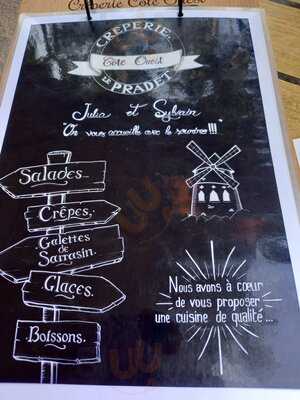 Creperie Côté Ouest
CREPERIE
Côté Ouest
LE PRADET
Julia et Sylvain
"On vous accueille avec le sourire!!!"
Salades...
Crêpes.
Galettes
de
Sarrasin.
Glaces.
Boissons.
Nous avons à cœur
de vous proposer
une cuisine de qualité...